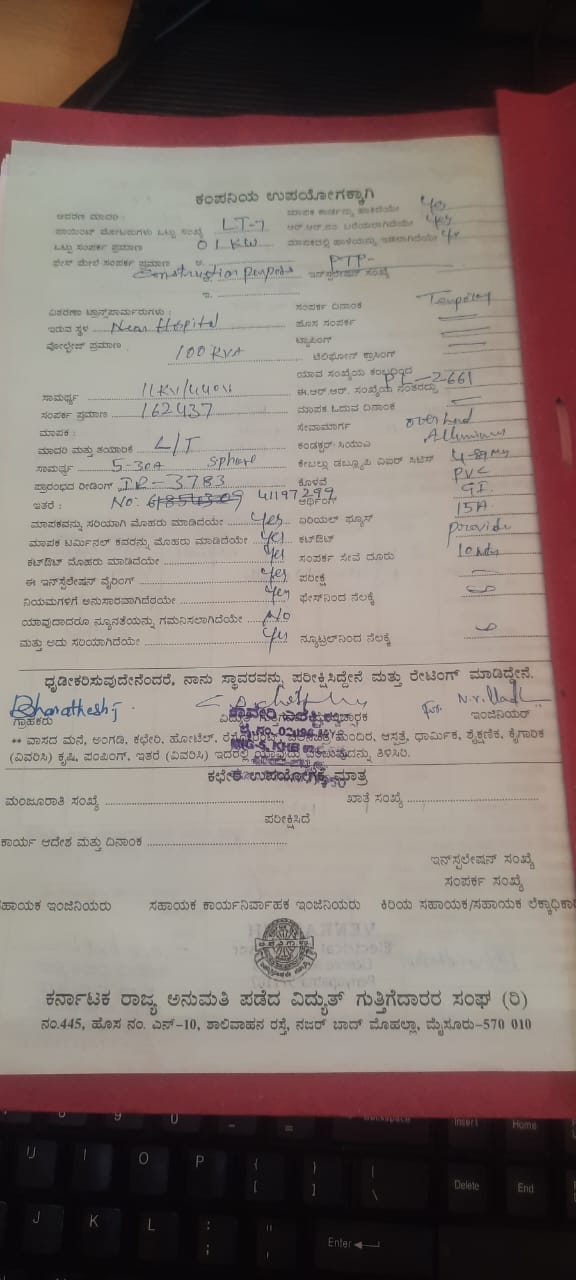 ಕಂಪನಿಯ ಉಪಯೋಗಕ್ಕಾಗಿ
ಆವರಣ ಮಾದರಿ : ಮಾಪಕ ಕಾರ್ಡನ್ನು ಹಾಕಿದೆಯೇ Yes
ಪಾಯಿಂಟ್ ಮೋಟರುಗಳು ಒಟ್ಟು ಸಂಖ್ಯೆ LT-7 ಆರ್.ಆರ್.ನಂ ಬರೆಯಲಾಗಿದೆಯೇ Yes
ಒಟ್ಟು ಸಂಪರ್ಕ ಪ್ರಮಾಣ 01 KW ಮಾಪಕದಲ್ಲಿ ಹಾಳೆಯನ್ನು ಇಡಲಾಗಿದೆಯೇ Yes
ಫೇಸ್ ಮೇಲೆ ಸಂಪರ್ಕ ಪ್ರಮಾಣ ಅ. PTP-
Construction ಇನ್ಸ್ಟಲೇಷನ್ ಸಂಖ್ಯೆ
ಇ.
ವಿತರಣಾ ಟ್ರಾನ್ಸ್‌ಪಾರ್ಮರುಗಳು : ಸಂಪರ್ಕ ದಿನಾಂಕ
ಇರುವ ಸ್ಥಳ Near Hospital ಹೊಸ ಸಂಪರ್ಕ
ವೋಲ್ಟೇಜ್ ಪ್ರಮಾಣ 100 KVA ಟ್ಯಾಪಿಂಗ್
ಟೆಲಿಫೋನ್ ಕ್ರಾಸಿಂಗ್
ಯಾವ ಸಂಖ್ಯೆಯ ಕಂಬದಿಂದ
ಸಾಮರ್ಥ್ಯ 11KV/440V ಈ.ಆರ್.ಆರ್. ಸಂಖ್ಯೆಯ ನಂತರದ್ದು
ಸಂಪರ್ಕ ಪ್ರಮಾಣ 162437 ಮಾಪಕ ಓದುವ ದಿನಾಂಕ
ಮಾಪಕ : ಸೇವಾಮಾರ್ಗ
ಮಾದರಿ ಮತ್ತು ತಯಾರಿಕೆ L/T ಕಂಡಕ್ಟರ್-ಸಿಯುವಿ
ಸಾಮರ್ಥ್ಯ 5-30A ಕೇಬಲ್ಲು ಡಬ್ಲ್ಯೂಪಿ ವಿಐರ್ ಸಿಟಿಸ್
ಪ್ರಾರಂಭದ ರೀಡಿಂಗ್ IR-3783 ಕೊಳವೆ PVC
ಇತರೆ : No: 41197299 ಆರ್ಥಿಂಗ್ GI
ಮಾಪಕವನ್ನು ಸರಿಯಾಗಿ ಮೊಹರು ಮಾಡಿದೆಯೇ Yes ಏರಿಯಲ್ ಫ್ಯೂಸ್ 15A
ಮಾಪಕ ಟರ್ಮಿನಲ್ ಕವರನ್ನು ಮೊಹರು ಮಾಡಿದೆಯೇ Yes ಕಟ್‌ಔಟ್
ಕಟ್‌ಔಟ್ ಮೊಹರು ಮಾಡಿದೆಯೇ Yes ಸಂಪರ್ಕ ಸೇವೆ ದೂರು
ಈ ಇನ್‌ಸ್ಟಲೇಷನ್ ವೈರಿಂಗ್ Yes ಪರೀಕ್ಷೆ
ನಿಯಮಗಳಿಗೆ ಅನುಸಾರವಾಗಿದೆಯೇ Yes ಫೇಸ್‌ನಿಂದ ನೆಲಕ್ಕೆ
ಯಾವುದಾದರೂ ನ್ಯೂನತೆಯನ್ನು ಗಮನಿಸಲಾಗಿದೆಯೇ No
ಮತ್ತು ಅದು ಸರಿಯಾಗಿದೆಯೇ Yes ನ್ಯೂಟ್ರಲ್‌ನಿಂದ ನೆಲಕ್ಕೆ
ಧೃಡೀಕರಿಸುವುದೇನೆಂದರೆ, ನಾನು ಸ್ಥಾವರವನ್ನು ಪರೀಕ್ಷಿಸಿದ್ದೇನೆ ಮತ್ತು ರೇಟಿಂಗ್ ಮಾಡಿದ್ದೇನೆ.
ಗ್ರಾಹಕರು ಇಂಜಿನಿಯರ್
** ವಾಸದ ಮನೆ, ಅಂಗಡಿ, ಕಛೇರಿ, ಹೋಟೆಲ್, ಮಂದಿರ, ಆಸ್ಪತ್ರೆ, ಧಾರ್ಮಿಕ, ಶೈಕ್ಷಣಿಕ, ಕೈಗಾರಿಕೆ
(ವಿವರಿಸಿ) ಕೃಷಿ, ಪಂಪಿಂಗ್, ಇತರೆ (ವಿವರಿಸಿ) ಇದರಲ್ಲಿ ಯಾವುದು ಎಂಬುವುದನ್ನು ತಿಳಿಸಿರಿ.
ಕಛೇರಿ ಉಪಯೋಗಕ್ಕೆ ಮಾತ್ರ
ಮಂಜೂರಾತಿ ಸಂಖ್ಯೆ ಖಾತೆ ಸಂಖ್ಯೆ
ಪರೀಕ್ಷಿಸಿದೆ
ಕಾರ್ಯ ಆದೇಶ ಮತ್ತು ದಿನಾಂಕ
ಇನ್‌ಸ್ಟಲೇಷನ್ ಸಂಖ್ಯೆ
ಸಂಪರ್ಕ ಸಂಖ್ಯೆ
ಸಹಾಯಕ ಇಂಜಿನಿಯರು ಸಹಾಯಕ ಕಾರ್ಯನಿರ್ವಾಹಕ ಇಂಜಿನಿಯರು ಕಿರಿಯ ಸಹಾಯಕ/ಸಹಾಯಕ
ಕರ್ನಾಟಕ ರಾಜ್ಯ ಅನುಮತಿ ಪಡೆದ ವಿದ್ಯುತ್ ಗುತ್ತಿಗೆದಾರರ ಸಂಘ (ರಿ)
ನಂ.445, ಹೊಸ ನಂ. ಎನ್-10, ಶಾಲಿವಾಹನ ರಸ್ತೆ, ನಜರ್ ಬಾದ್ ಮೊಹಲ್ಲಾ, ಮೈಸೂರು-570 010
U I O P { [ } ] | \ Delete End
J K L : ; " Enter
Insert Home